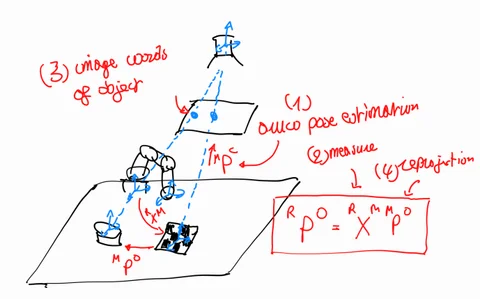 (3) image coords
of object
(1)
aruco pose estimation
(2) measure
(4) reprojection
ᴹPᶜ
ᴿXᴹ
ᴹPᴼ
ᴿPᴼ = ᴿXᴹ ᴹPᴼ